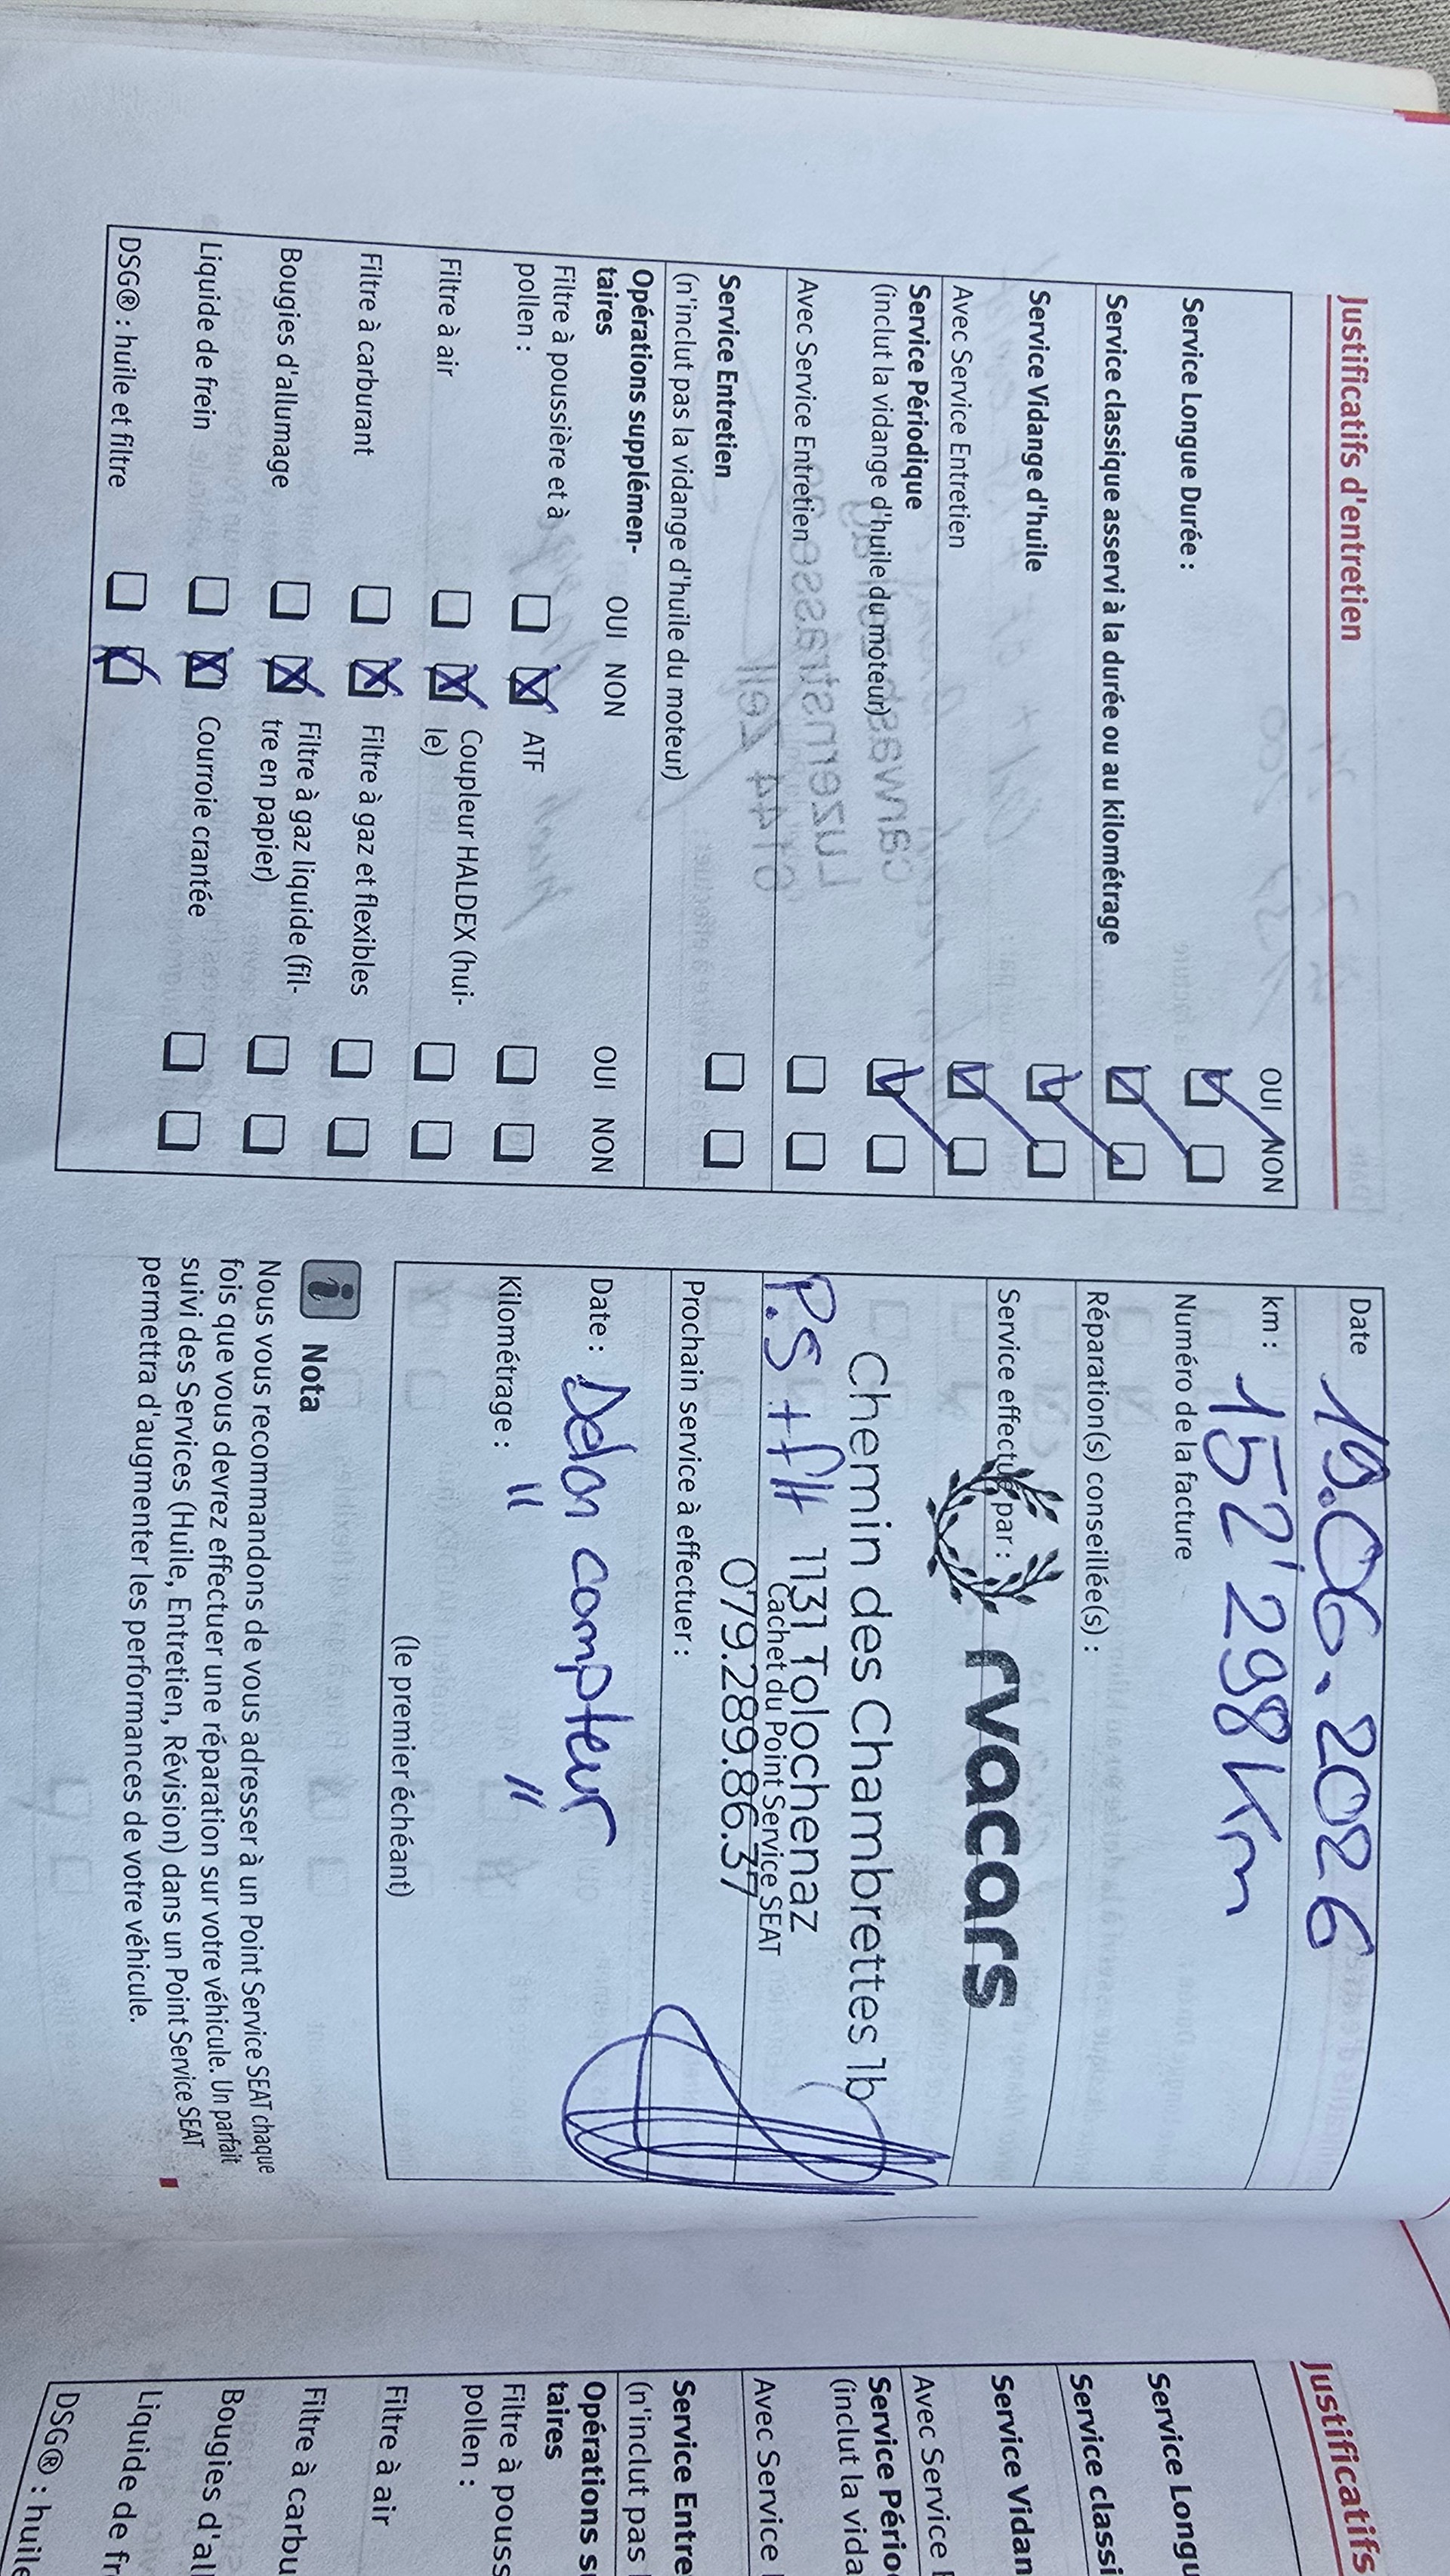 Justificatifs d'entretien
OUI NON
Service Longue Durée :
Service classique asservi à la durée ou au kilométrage
Service Vidange d'huile
Avec Service Entretien
Service Périodique
(inclut la vidange d'huile du moteur)
Avec Service Entretien
Service Entretien
(n'inclut pas la vidange d'huile du moteur)
Opérations supplémen-
taires
OUI NON
OUI NON
Filtre à poussière et à
pollen :
ATF
Filtre à air
Coupleur HALDEX (hui-
le)
Filtre à carburant
Filtre à gaz et flexibles
Bougies d'allumage
Filtre à gaz liquide (fil-
tre en papier)
Liquide de frein
Courroie crantée
DSG® : huile et filtre
Date 19.06.2026
km : 152'298 Km
Numéro de la facture
Réparation(s) conseillée(s) :
Service effectué par :
rvacars
Chemin des Chambrettes 1b
P.S + f H 1131 Tolochenaz
Cachet du Point Service SEAT
079.289.86.37
Prochain service à effectuer :
Date : Selon compteur
Kilométrage : " "
(le premier échéant)
Nota
Nous vous recommandons de vous adresser à un Point Service SEAT chaque
fois que vous devrez effectuer une réparation sur votre véhicule. Un parfait
suivi des Services (Huile, Entretien, Révision) dans un Point Service SEAT
permettra d'augmenter les performances de votre véhicule.
Justificatifs
Service Longu
Service classi
Service Vidan
Avec Service E
Service Pério
(inclut la vida
Avec Service
Service Entre
(n'inclut pas
Opérations su
taires
Filtre à pouss
pollen :
Filtre à air
Filtre à carbu
Bougies d'al
Liquide de fr
DSG® : huile